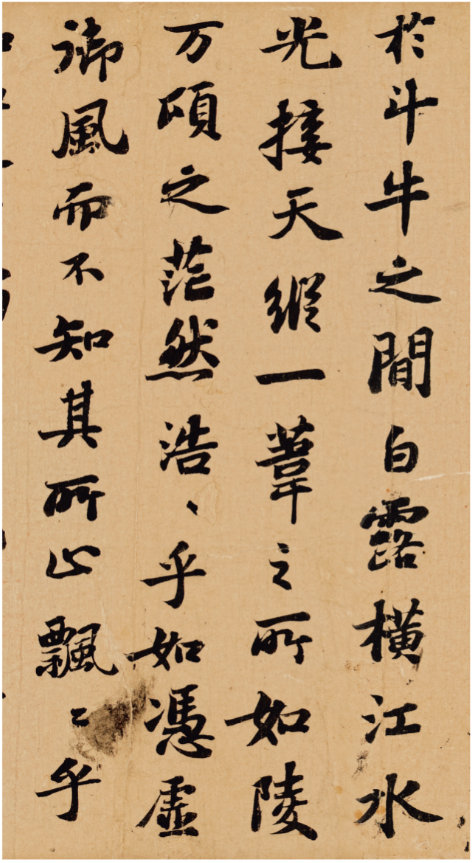 於斗牛之間白露橫江水
光接天縱一葦之所如陵
万頃之茫然浩〻乎如馮虛
御風而不知其所止飄〻乎